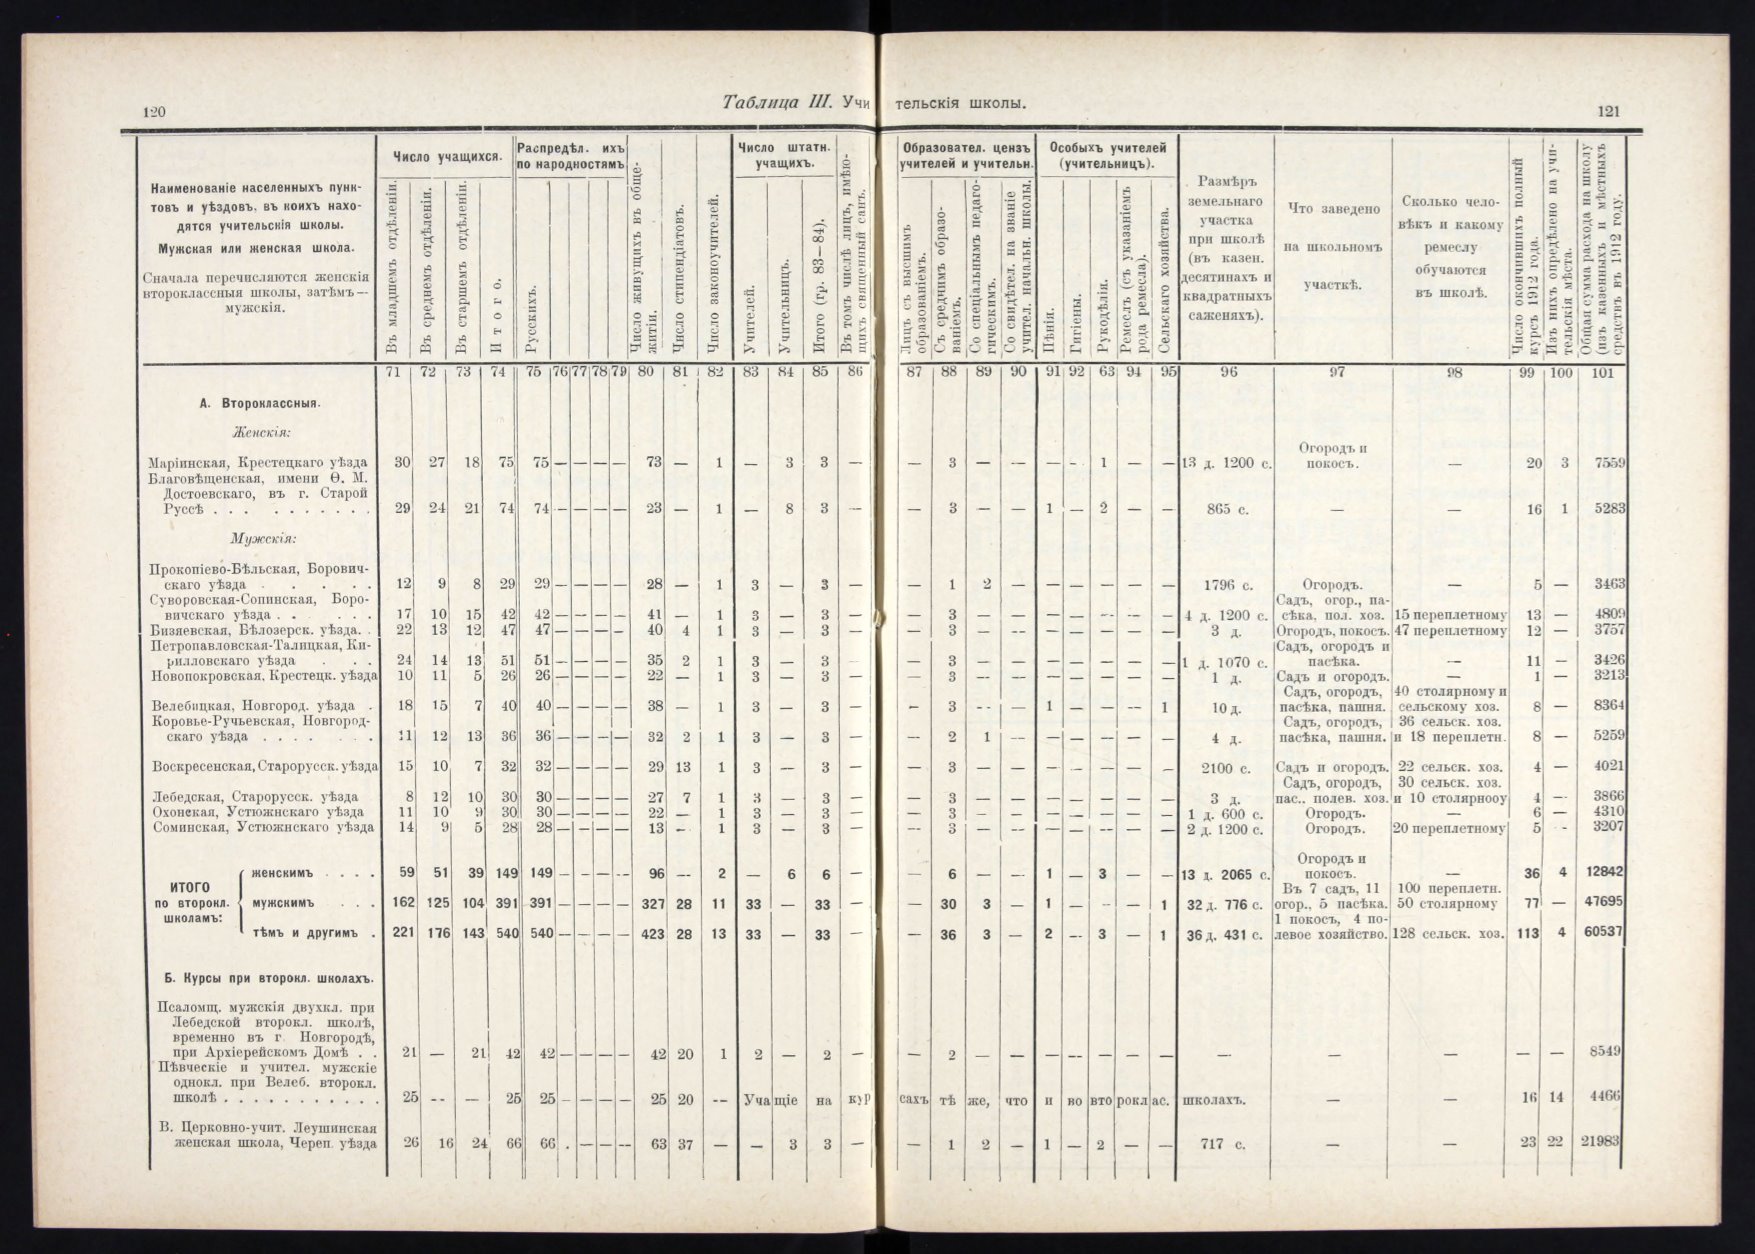 120
Таблица III. Учи тельскія школы.
121
Наименованіе населенныхъ пунк-
товъ и уѣздовъ, въ коихъ нахо-
дятся учительскія школы.
Мужская или женская школа.
Сначала перечисляются женскія
второклассныя школы, затѣмъ —
мужскія.
Число учащихся.
Въ младшемъ отдѣленіи.
Въ среднемъ отдѣленіи.
Въ старшемъ отдѣленіи.
Итого.
Распредѣл. ихъ
по народностямъ
Русскихъ.
Число живущихъ въ обще-
житіи.
Число стипендіатовъ.
Число законоучителей.
Число штатн.
учащихъ.
Учителей.
Учительницъ.
Итого (гр. 83—84).
Въ томъ числѣ лицъ, имѣю-
щихъ священный санъ.
Образовател. цензъ
учителей и учительн.
Лицъ съ высшимъ
образованіемъ.
Съ среднимъ образо-
ваніемъ.
Со спеціальнымъ педаго-
гическимъ.
Со свидѣтел. на званіе
учител. начальн. школы.
Особыхъ учителей
(учительницъ).
Пѣнія.
Гигіены.
Рукодѣлія.
Ремеслъ (съ указаніемъ
рода ремесла).
Сельскаго хозяйства.
Размѣръ
земельнаго
участка
при школѣ
(въ казен.
десятинахъ и
квадратныхъ
саженяхъ).
Что заведено
на школьномъ
участкѣ.
Сколько чело-
вѣкъ и какому
ремеслу
обучаются
въ школѣ.
Число окончившихъ полный
курсъ 1912 года.
Изъ нихъ опредѣлено на учи-
тельскія мѣста.
Общая сумма расхода на школу
(изъ казенныхъ и мѣстныхъ
средствъ въ 1912 году.
71 72 73 74 75 76 77 78 79 80 81 82 83 84 85 86 87 88 89 90 91 92 63 94 95 96 97 98 99 100 101
А. Второклассныя.
Женскія:
Огородъ и
Маріинская, Крестецкаго уѣзда 30 27 18 75 75 — — — — 73 — 1 — 3 3 — — 3 — — — - 1 — — 13 д. 1200 с. покосъ. — 20 3 7559
Благовѣщенская, имени Ѳ. М.
Достоевскаго, въ г. Старой
Руссѣ . . . . . . . . . . 29 24 21 74 74 — — — — 23 — 1 — 8 3 — — 3 — — 1 — 2 — — 865 с. — — 16 1 5283
Мужскія:
Прокопіево-Бѣльская, Борович-
скаго уѣзда . . . . . 12 9 8 29 29 — — — — 28 — 1 3 — 3 — — 1 2 — — — — — — 1796 с. Огородъ. — 5 — 3463
Суворовская-Сопинская, Боро- Садъ, огор., па-
вичскаго уѣзда . . . . . 17 10 15 42 42 — — — — 41 — 1 3 — 3 — — 3 — — — — — — — 4 д. 1200 с. сѣка, пол. хоз. 15 переплетному 13 — 4809
Бизяевская, Бѣлозерск. уѣзда. . 22 13 12 47 47 — — — — 40 4 1 3 — 3 — — 3 — — — — — — — 3 д. Огородъ, покосъ. 47 переплетному 12 — 3757
Петропавловская-Талицкая, Ки- Садъ, огородъ и
рилловскаго уѣзда . . . 24 14 13 51 51 — — — — 35 2 1 3 — 3 — — 3 — — — — — — — 1 д. 1070 с. пасѣка. — 11 — 3426
Новопокровская, Крестецк. уѣзда 10 11 5 26 26 — — — — 22 — 1 3 — 3 — — 3 — — — — — — — 1 д. Садъ и огородъ. — 1 — 3213
Садъ, огородъ, 40 столярному и
Велебицкая, Новгород. уѣзда . 18 15 7 40 40 — — — — 38 — 1 3 — 3 — — 3 — — 1 — — — 1 10 д. пасѣка, пашня. сельскому хоз. 8 — 8364
Коровье-Ручьевская, Новгород- Садъ, огородъ, 36 сельск. хоз.
скаго уѣзда . . . . . . . 11 12 13 36 36 — — — — 32 2 1 3 — 3 — — 2 1 — — — — — — 4 д. пасѣка, пашня. и 18 переплетн. 8 — 5259
Воскресенская, Старорусск. уѣзда 15 10 7 32 32 — — — — 29 13 1 3 — 3 — — 3 — — — — — — — 2100 с. Садъ и огородъ. 22 сельск. хоз. 4 — 4021
Садъ, огородъ, 30 сельск. хоз.
Лебедская, Старорусск. уѣзда 8 12 10 30 30 — — — — 27 7 1 3 — 3 — — 3 — — — — — — — 3 д. пас., полев. хоз. и 10 столярнооу 4 — 3866
Охонская, Устюжнскаго уѣзда 11 10 9 30 30 — — — — 22 — 1 3 — 3 — — 3 — — — — — — — 1 д. 600 с. Огородъ. — 6 — 4310
Соминская, Устюжнскаго уѣзда 14 9 5 28 28 — — — — 13 — 1 3 — 3 — — 3 — — — — — — — 2 д. 1200 с. Огородъ. 20 переплетному 5 - 3207
Огородъ и
женскимъ . . . . 59 51 39 149 149 — — — — 96 — 2 — 6 6 — — 6 — — 1 — 3 — — 13 д. 2065 с. покосъ. — 36 4 12842
ИТОГО
Въ 7 садъ, 11 100 переплетн.
по второкл. мужскимъ . . . 162 125 104 391 391 — — — — 327 28 11 33 — 33 — — 30 3 — 1 — - — 1 32 д. 776 с. огор., 5 пасѣка. 50 столярному 77 — 47695
школамъ:
1 покосъ, 4 по-
тѣмъ и другимъ . 221 176 143 540 540 — — — — 423 28 13 33 — 33 — — 36 3 — 2 — 3 — 1 36 д. 431 с. левое хозяйство. 128 сельск. хоз. 113 4 60537
Б. Курсы при второкл. школахъ.
Псаломщ. мужскія двухкл. при
Лебедской второкл. школѣ,
временно въ г. Новгородѣ,
при Архіерейскомъ Домѣ . . 21 — 21 42 42 — — — — 42 20 1 2 — 2 — — 2 — — — — — — — — — — — — 8549
Пѣвческіе и учител. мужскіе
однокл. при Велеб. второкл.
школѣ . . . . . . . . . . . 25 — — 25 25 — — — — 25 20 — Уча щіе на кур сахъ тѣ же, что и во вто рокл ас. школахъ. — — 16 14 4466
В. Церковно-учит. Леушинская
женская школа, Череп. уѣзда 26 16 24 66 66 . — — — 63 37 — — 3 3 — — 1 2 — 1 — 2 — — 717 с. — — 23 22 21983